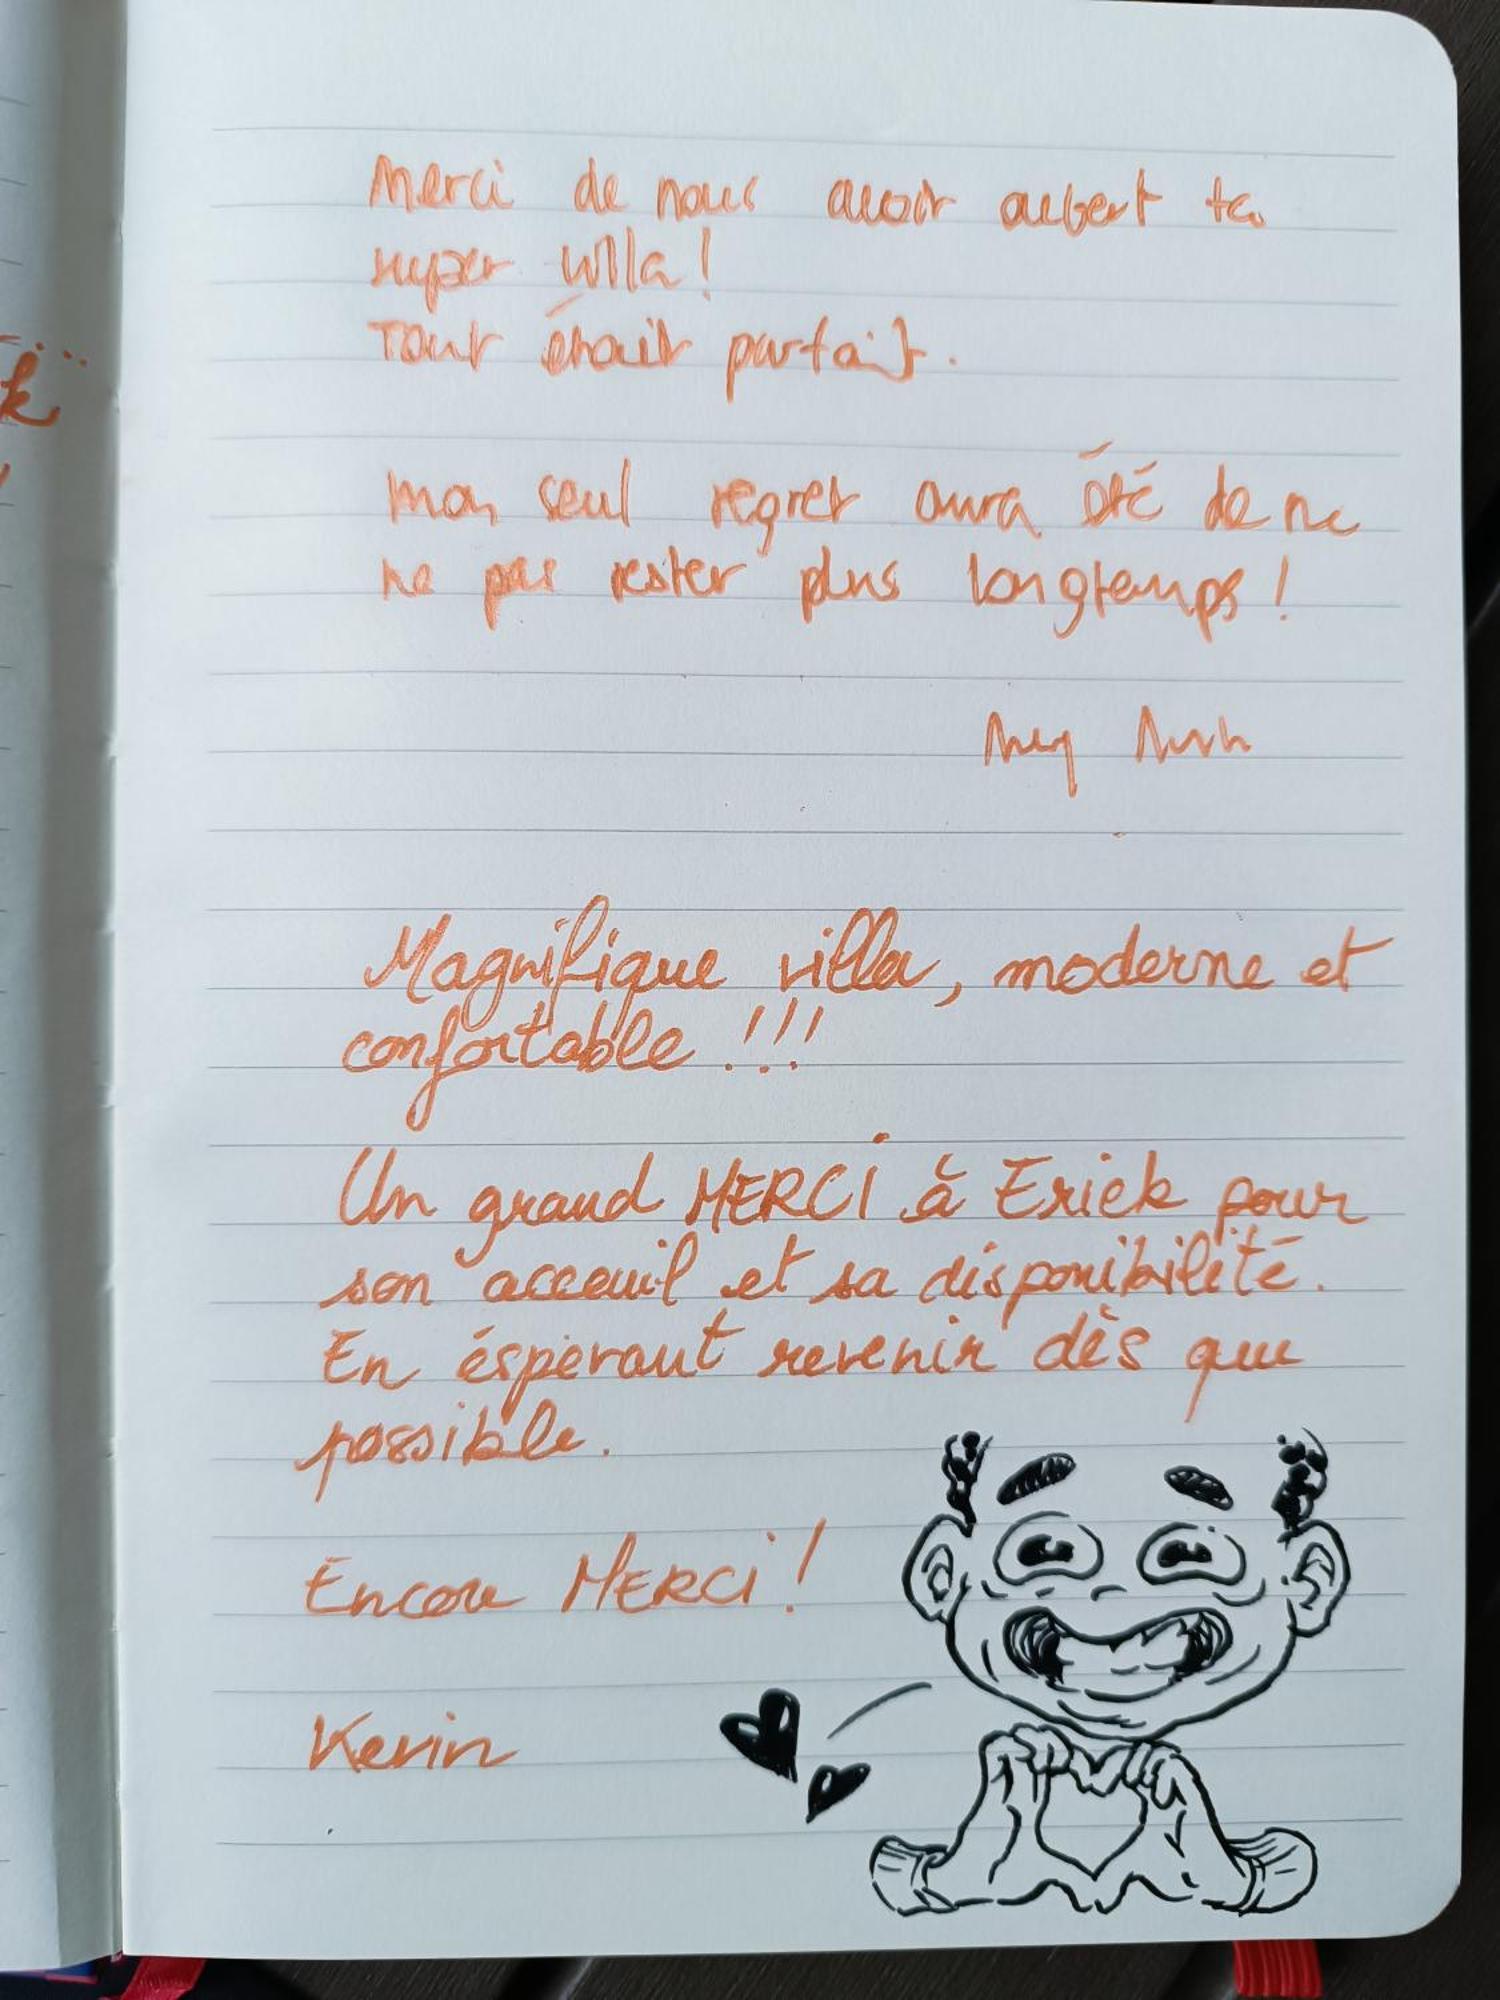 k
Merci de nous avoir ouvert ta
super villa !
Tout était parfait.
Mon seul regret aura été de ne
ne pas rester plus longtemps !
Magnifique villa, moderne et
confortable !!!
Un grand MERCI à Erick pour
son acceuil et sa disponibilité.
En ésperant revenir dès que
possible.
Encore MERCI !
Kevin